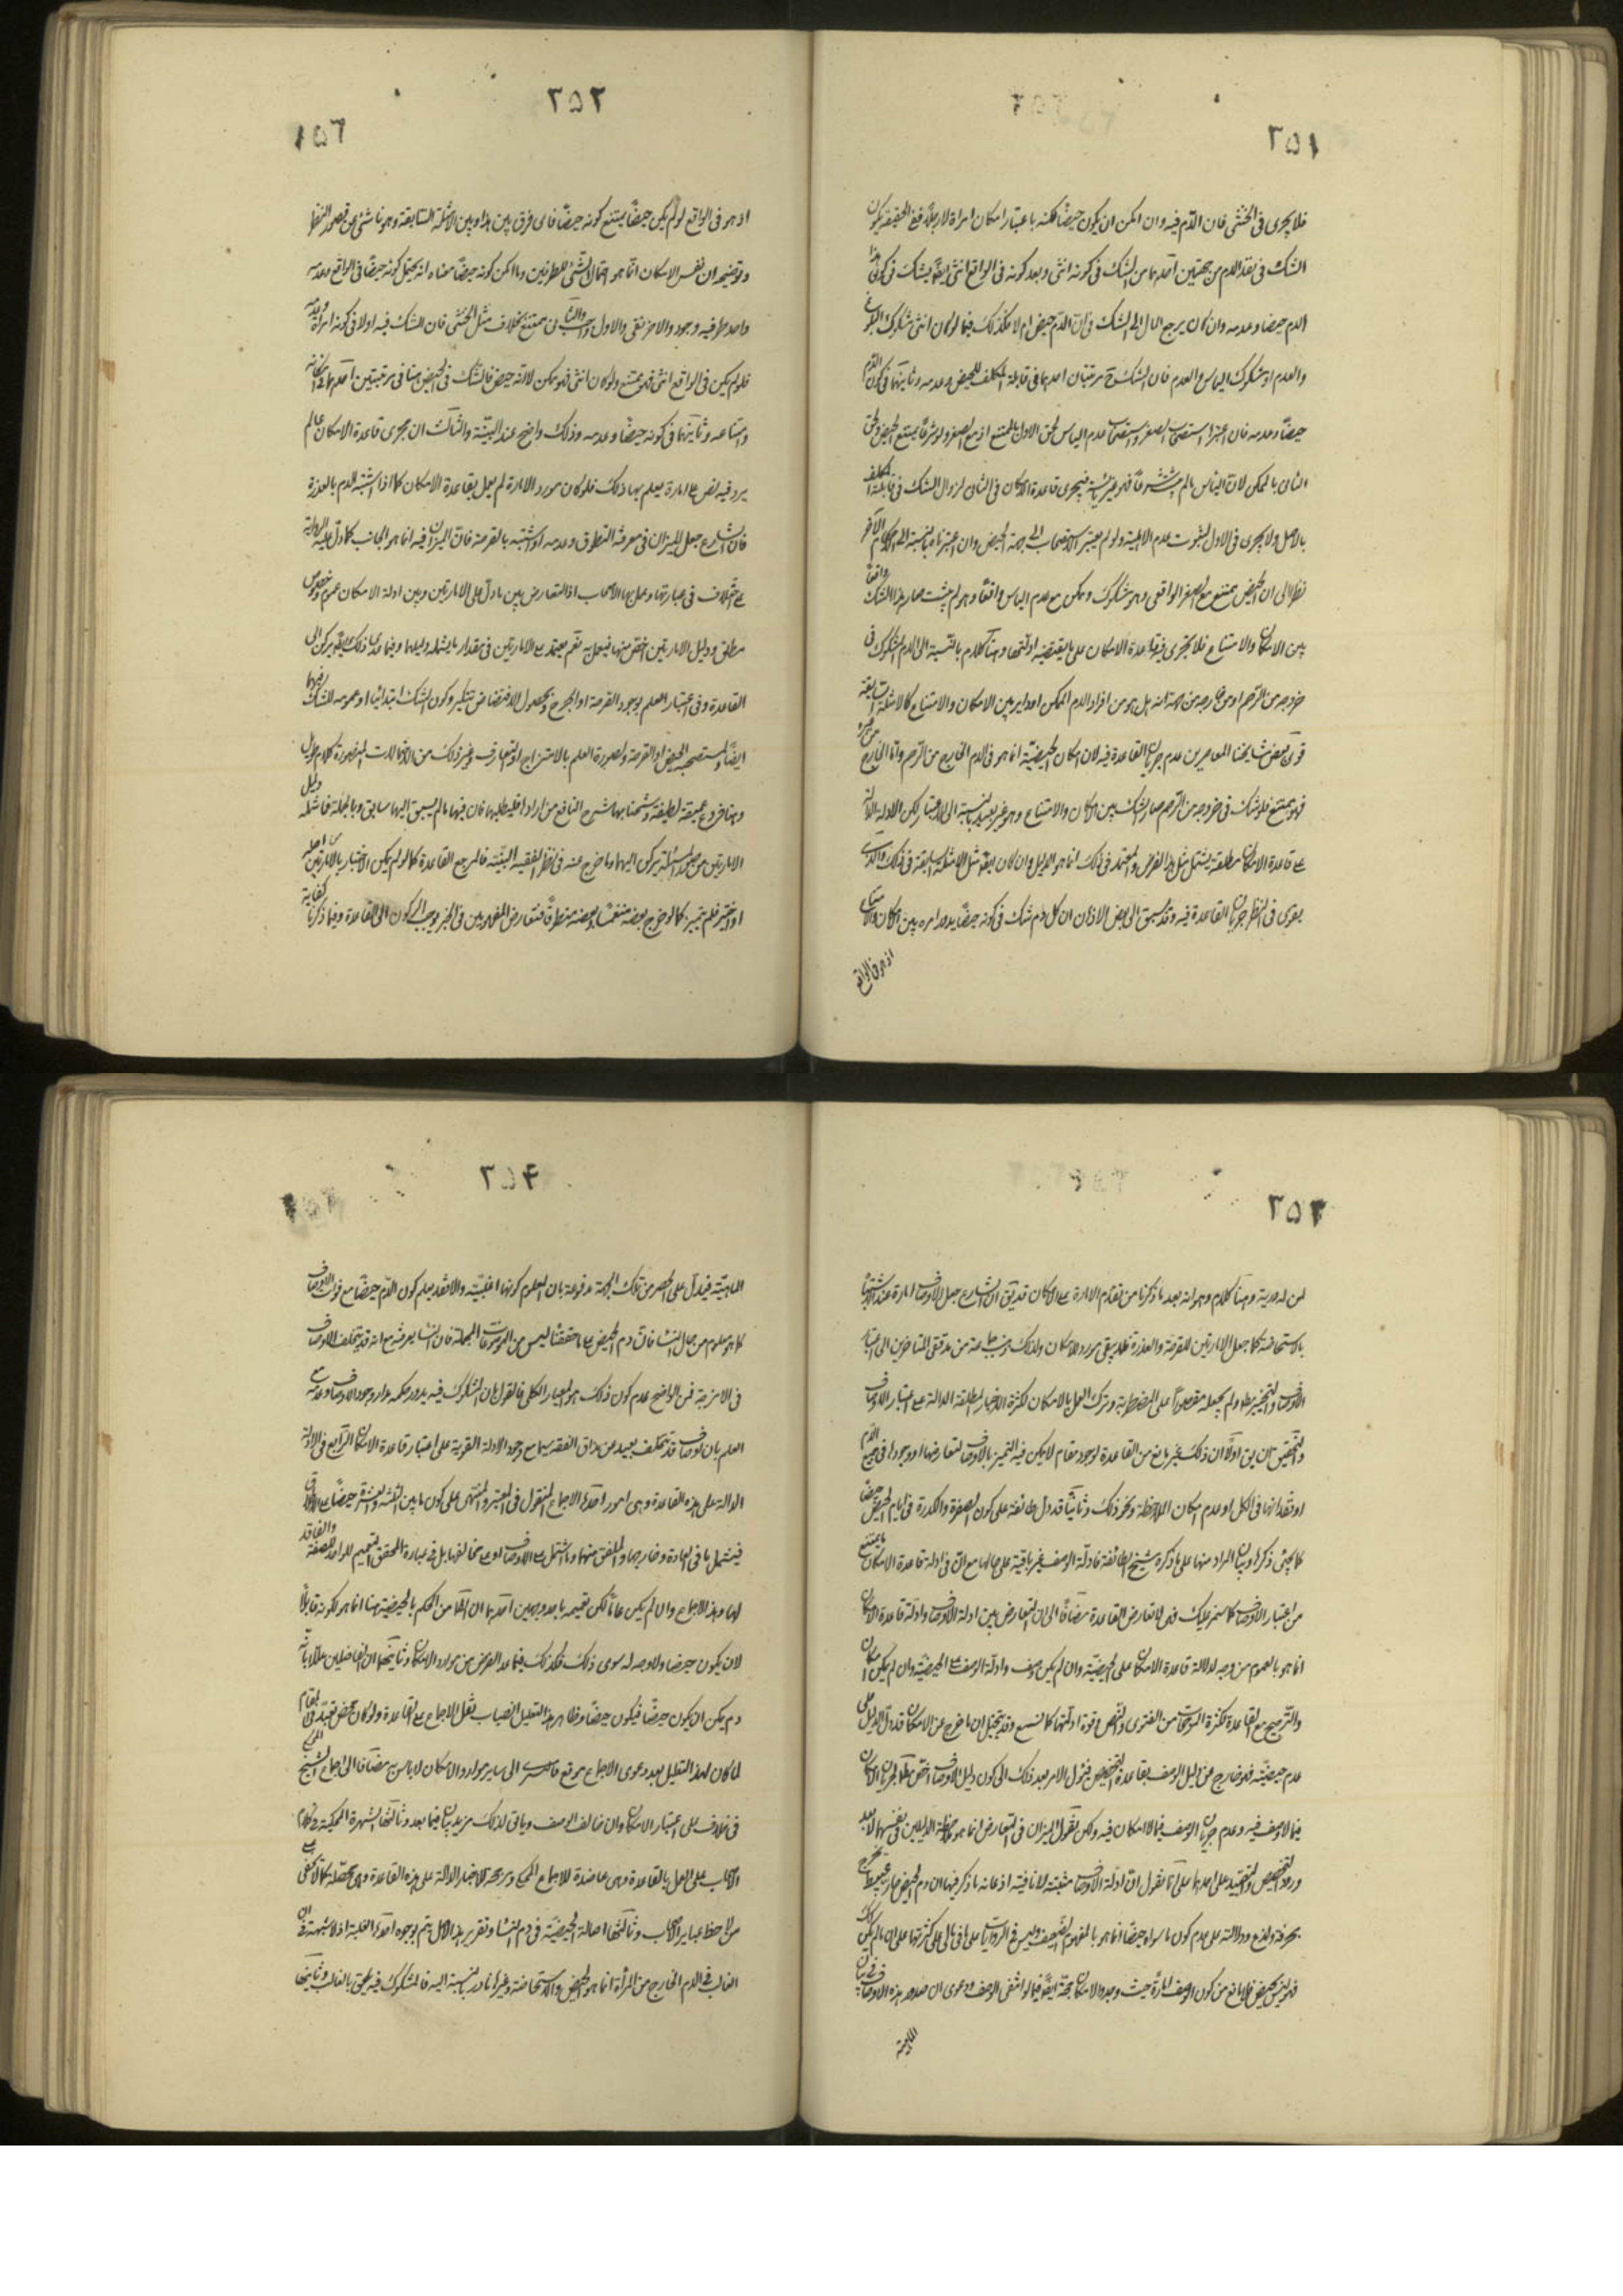 ٢٥١
فلا يجرى فى الخنثى فان الدّم فيه وان امكن ان يكون حيضًا لكنه باعتبار امكان امراة لا رجلاً ففى الحقيقة يكون
الشك فى هذا الدم من جهتين احدهما من الشك فى كونه انثى وبعد كونه فى الواقع انثى ايضًا يشك فى كون هذا
الدم حيضا وعدمه وان كان يرجع المال الى الشك فى ان الدّم حيض ام لا وكذلك فيما لو كان انثى مشكوك البلوغ
والعدم او مشكوك الياس والعدم فان للشك مرتبتان احدهما فى قابلية المكلف للحيض وعدمه وثانيتهما فى كون الدّم
حيضًا وعدمه فان اعتبرا استصحاب الصغر واستصحاب عدم الياس لحق الاول بالممتنع اذ مع الصغر ولو شرعًا يمتنع الحيض ولحق
الثانى بالممكن لان اليأس ما لم يثبت شرعًا فهو غير يائسة فيجرى قاعدة الامكان فى الثانى لزوال الشك فى قابلية المكلف
بالاصل ولا يجرى فى الاول لثبوت عدم الاهلية ولو لم يعتبر الاستصحاب الى جهة الحيض وان اعتبرناه بالنسبة الى الاحكام الآخر
نظرا الى ان الحيض ممتنع مع الصغر الواقعى وهو مشكوك وممكن مع عدم الياس واقعًا وهو لم يثبت صار هذا الشك واقعًا
بين الامكان والامتناع فلا يجرى فيه قاعدة الامكان على ما يقتضيه ادلتها وهنا كلام بالنسبة الى الدم المشكوك فى
خروجه من الرّحم او من خارجه من جهة انه هل هو من افراد الدم الممكن او داير بين الامكان والامتناع كالامثلة السابقة
قوى بعض مشايخنا المعاصرين عدم جريان القاعدة فيه لان امكان الحيضيّة انما هو فى الدم الخارج من الرّحم وامّا الخارج من غيره
فهو ممتنع فلو شك فى خروجه من الرّحم صار الشك بين الامكان والامتناع وهو غير بعيد بالنسبة الى الاعتبار لكن الادلة الدالة
على قاعدة الامكان مطلقة يشتمل مثل هذا الفرض والمعتمد فى ذلك انما هو الدليل وان كان ايضًا مثل الامثلة السابقة فى ذلك والذى
يقوى فى النظر جريان القاعدة فيه وقد سبق الى بعض الاذهان ان كل دم شك فى كونه حيضًا يدور امره بين الامكان والامتناع
اذ هو فى الواقع
٢٥٢
اذ هو فى الواقع لو لم يكن حيضًا يمتنع كونه حيضًا فاى فرق بين هذا وبين الامثلة السّابقة وهو ناشئ عن قصور النظر
وتوضيحه ان نفس الامكان انّما هو احتمال الشئ للطرفين وما امكن كونه حيضًا معناه انه يحتمل كونه حيضًا فى الواقع وعدمه
واحد طرفيه وجود والاخر نفى والاول واجب والثانى ممتنع بخلاف مثل الخنثى فان الشك فيه اولا فى كونه امراة وعدمه
فلو لم يكن فى الواقع انثى فهو ممتنع ولو كان انثى فهو ممكن لا انه حيض فالشك فى الحيض هنا فى مرتبتين احدهما فى امكانه
وامتناعه وثانيتهما فى كونه حيضًا وعدمه وذلك واضح عند البيّنة والثالث ان مجرى قاعدة الامكان عالم
يرد فيه نص على امارة يعلم بها ذلك فلو كان مورد الامارة لم يعمل بقاعدة الامكان كما اذا اشتبه الدم بالعذرة
فان الشارع جعل الميزان فى معرفته التطوق وعدمه او اشتبه بالقرحة فان الميزان فيه انما هو الجانب كما دل عليه الرواية
على اختلاف فى عبارتها وعمل بها الاصحاب اذ التعارض بين ما دل على الامارتين وبين ادلة الامكان عموم وخصوص
مطلق ودليل الامارتين اخص منها فيعمل به نعم يعتمد على الامارتين فى مقدار ما يشمله دليلهما وفيما عدى ذلك فيركن الى
القاعدة وفى اعتبار العلم بوجود القرحة او الجرح وبحصول الافتضاض تنكير وكون الشك ابتدائيا او عمومه للشك فيهما
ايضًا ولمستصحب الحيض او القرحة ولصورة العلم بالامتزاج او التعارف وغير ذلك من الاحتمالات المتصورة كلام طويل
وهنا فروع عميقة لطيفة وشحنا بها شرح النافع من اراد فليطلبها فان فيها ما لم يسبق اليها سابق وبالجملة فما شمله دليل
الامارتين من صور المسئلة يركن اليهما وما خرج عنه فى نظر الفقيه البيّنة فالمرجع القاعدة كما لو لم يكن الاختبار بالامارتين من اصله
او اختبر فلم يتميز كما لو خرج بعضه منغمسًا وبعضه متطوقًا فتعارض المفهومين فى الخبر يوجب الركون الى القاعدة وفيما ذكرنا كفاية
٢٥٣
لمن له دربة وهنا كلام وهو انه بعد ما ذكرنا من تقدّم الامارة على الامكان قد يق ان الشارع جعل الاوصاف امارة عند الاشتباه
بالاستحاضة كما جعل الامارتين للقرحة والعذرة فلم يبقى مورد للامكان ولذلك ذهب جماعة من مدققى المتاخرين الى اعتبار
الاوصاف والتميز مط ولم يجعله مقصورًا على المضطربة وترك العمل بالامكان لكثرة الاخبار المطلقة الدالة على اعتبار الاوصاف
والتحقيق ان يق اولًا ان ذلك غير مانع من القاعدة لوجود مقام لا يمكن فيه التميز بالاوصاف لتعارضها او وجودها فى جميع الدّم
او فقدانها فى الكل او عدم امكان الملاحظة ونحو ذلك وثانيًا قد دل طائفة على كون الصفرة والكدرة فى ايام الحيض حيضًا
كما يجئ ذكرها وبيان المراد منها على ما ذكره شيخ الطائفة فادلّة الوصف غير باقية على حالها مع ان فى ادلة قاعدة الامكان ما يمنع
من اعتبار الاوصاف كما سنمر عليك فهى لا تعارض القاعدة مضافًا الى ان التعارض بين ادلة الاوصاف وادلّة قاعدة الامكان
انما هو بالعموم من وجه لدلالة قاعدة الامكان على الحيضيّة وان لم يكن وصف وادلّة الوصف على الحيضيّة وان لم يكن امكان
والترجيح مع القاعدة لكثرة المرجحات من الفتوى والنص وقوة ادلتها كما نسمع وقد يتخيل ان ما خرج عن الامكان قد دل الدليل على
عدم حيضيّته فهو خارج عن دليل الوصف بقاعدة التخصيص فيؤل الامر بعد ذلك الى كون دليل الاوصاف اخص مطلقا لجريان الامكان
فيما لا وصف فيه وعدم جريان الوصف فيما لا امكان فيه ولكن نقول الميزان فى التعارض انما هو ملاحظة الدليلين فى نفسهما لا بعد
ورود التخصيص والتقييد على احدهما على انا نقول ان ادلّة الاوصاف مثبتة لا نافية اذ غاية ما ذكر فيها ان دم الحيض حار عبيط يخرج
بحرقة ولذع ودلالته على عدم كون ما سواه حيضًا انما هو بالمفهوم الضعيف وليس فى الروايات على ما فى بالى على كثرتها على ان ما لم يكن كذلك
فهو ليس بحيض فلا مانع من كون الوصف امارة حيث وجد والامكان حجة ايضًا فيما لو انتفى الوصف ودعوى ان صدور هذه الاوصاف فى بيان
الماهيّة
٢٥٤
الماهيّة فيدلّ على الحصر من تلك الجهة مدفوعة بان المعلوم كونها اغلبيّة والا فقد يعلم كون الدّم حيضًا مع فوات الاوصاف
كما هو معلوم من حال النساء فان دم الحيض على ما حققنا ليس من الموضوعات المجملة فان النساء يعرفنه مع انه قد يتخلف الاوصاف
فى الامزجة فمن الواضح عدم كون ذلك هو المعيار الكلى فالقول بان المشكوك فيه يدور حكمه مدار وجود الاوصاف وعدمه مع
العلم بان الاوصاف قد تتخلف بعيد من مذاق الفقه سيما مع وجود الادلة القوية على اعتبار قاعدة الامكان الرابع فى الادلّة
الدالة على هذه القاعدة وهى امور احدها الاجماع المنقول فى المعتبر والمنتهى على كون ما بين الثلثة والعشرة حيضًا
فيشمل ما فى العادة وخارجها والملفق منهما وما اشتمل على الاوصاف او على مخالفها بل فى عبارة المحقق التعميم للواجد للصفة والفاقد
لها وهذا الاجماع وان لم يكن عامًا لكن تعميمه باحد وجهين احدهما ان الظاهر من الحكم بالحيضية هنا انما هو لكونه قابلًا
لان يكون حيضا ولا وجه له سوى ذلك فكذلك فيما عدا الفرض من موارد الامكان وثانيتهما ان الفاضلين عللا بانّه
دم يمكن ان يكون حيضًا فيكون حيضًا وظاهر هذا التعليل انصباب نقل الاجماع على القاعدة ولو كان محض تعبّد فى المقام
لما كان لهذا التعليل بعد دعوى الاجماع موقع الى ساير موارد الامكان لا باس به مضافا الى اجماع الشيخ
فى خلاف على اعتبار الامكان وان خالف الوصف وياتى لذلك مزيد بيان فيما بعد وثانيها الشهرة المحكية فى كلام
الاصحاب على العمل بالقاعدة وهى عاضدة للاجماع المحكى ومرجحة للاخبار الدالة على هذه القاعدة وهى محصّلة كما لا يخفى على
من لاحظ عباير الاصحاب وثالثها اصالة الحيضيّة فى دم النساء وتقرير هذا الاصل يتم بوجوه احدها الغلبة اذ لا شبهة فى ان
الغالب فى الدم الخارج من المرأة انما هو الحيض والاستحاضة وغيرها نادر بالنسبة اليه فالمشكوك فيه يلحق بالغالب وثانيها